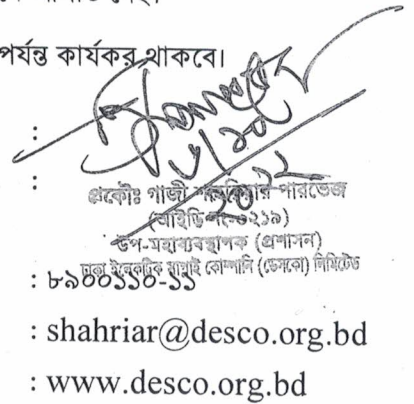 পর্যন্ত কার্যকর থাকবে।
:
:
প্রকৌঃ গাজী শাহরিয়ার পারভেজ
উপ-মহাব্যবস্থাপক (প্রশাসন)
ঢাকা ইলেকট্রিক সাপ্লাই কোম্পানি (ডেসকো) লিমিটেড
: ৮৯০০১১০-১১
: shahriar@desco.org.bd
: www.desco.org.bd